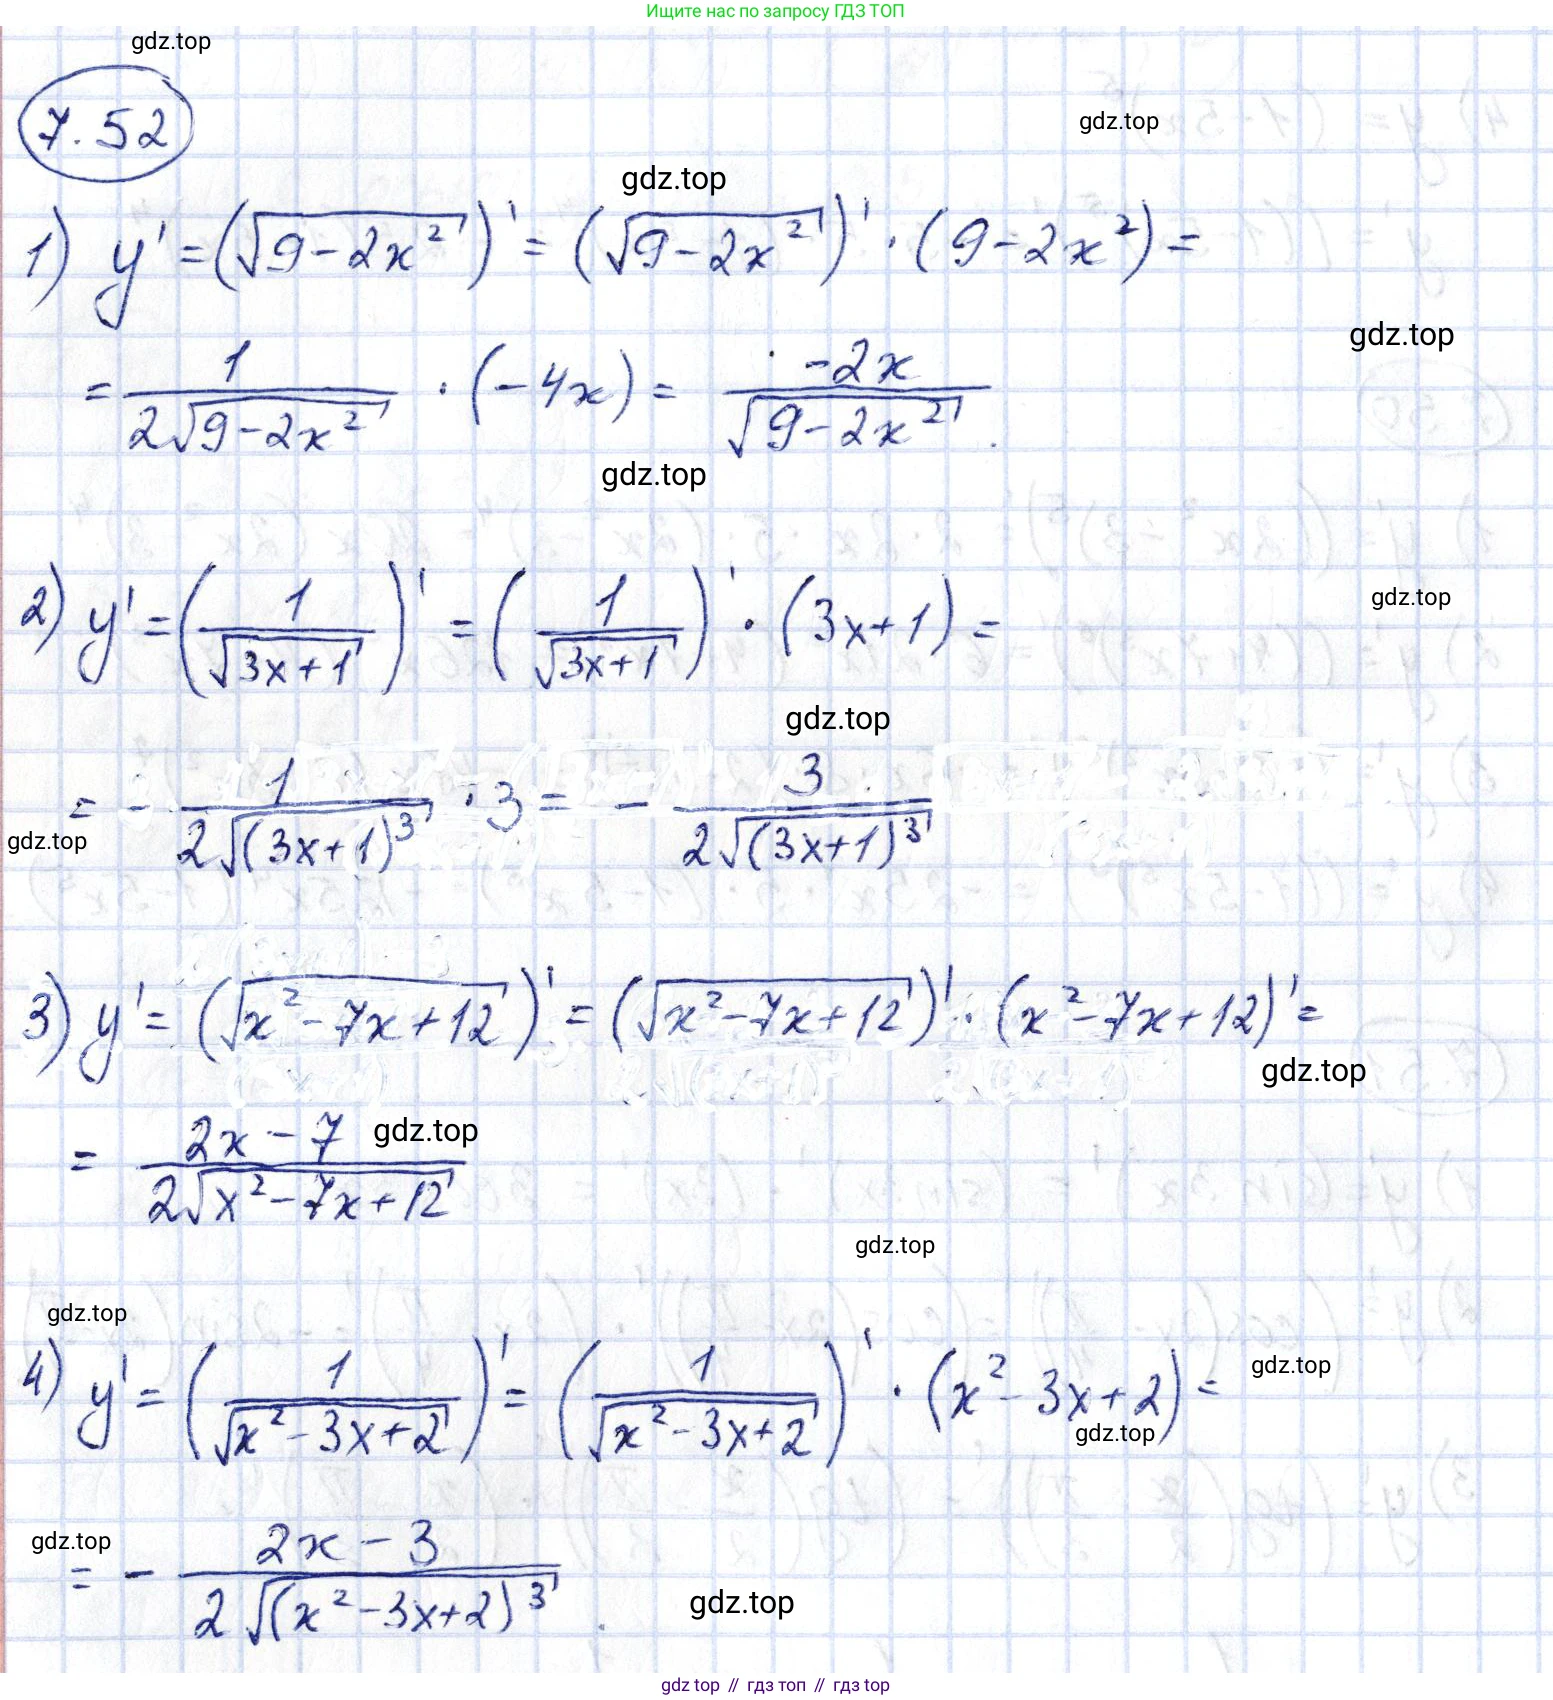 Ищите нас по запросу ГДЗ ТОП
gdz.top
7.52
gdz.top
gdz.top
1) y' = (√(9-2x²))' = (√(9-2x²))' · (9-2x²) =
gdz.top
= 1/(2√(9-2x²)) · (-4x) = -2x/√(9-2x²).
gdz.top
2) y' = (1/√(3x+1))' = (1/√(3x+1))' · (3x+1) =
gdz.top
gdz.top
= - 1/(2√((3x+1)³)) · 3 = - 3/(2√((3x+1)³))
gdz.top
3) y' = (√(x²-7x+12))' = (√(x²-7x+12))' · (x²-7x+12)' =
gdz.top
= (2x-7)/(2√(x²-7x+12))
gdz.top
gdz.top
gdz.top
4) y' = (1/√(x²-3x+2))' = (1/√(x²-3x+2))' · (x²-3x+2) =
gdz.top
gdz.top
= - (2x-3)/(2√((x²-3x+2)³)).
gdz.top
gdz.top
gdz top // гдз топ // гдз top